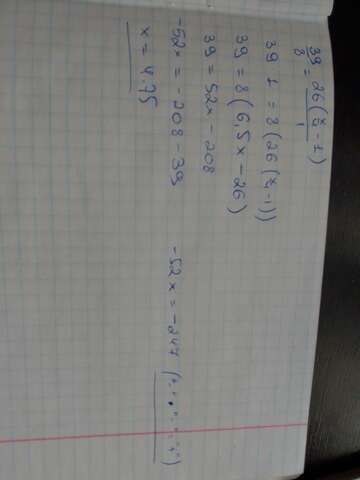 39/8 = 26(x/4 - 1)/1
39 1 = 8(26(x/4 - 1))
39 = 8(6,5x - 26)
39 = 52x - 208
-52x = -208 - 39 -52x = -247
x = 4.75